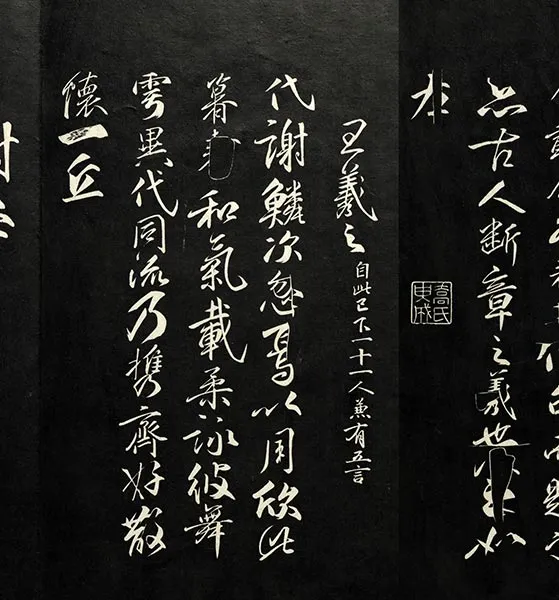 亦古人断章之義也
王羲之 自此已下一十一人兼有五言
代謝鱗次忽焉以周欣此
暮春和氣載柔詠彼舞
雩異代同流乃携齊好散
懷一丘